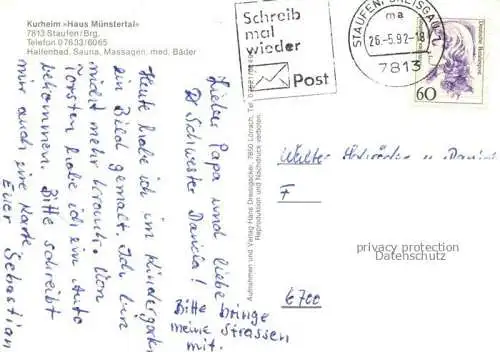 Kurheim »Haus Münstertal«
7813 Staufen/Brg.
Telefon 07633/6065
Hallenbad, Sauna, Massagen, med. Bäder
Schreib
mal
wieder
Post
STAUFEN, BREISGAU
ma
26.-5.92-18
7813
Deutsche Bundespost
60
Lieber Papa und liebe
Schwester Daniela!
Heute habe ich im Kindergarten
ein Bild gemalt. Ich bin
nicht mehr krank. Von
Torsten habe ich ein Auto
bekommen. Bitte schreibt
mir auch eine Karte
Euer Sebastian
Bitte bringe
meine Strassen
mit.
Aufnahmen und Verlag Hans Dreisigacker, 7850 Lörrach, Tel.
Reproduktion und Nachdruck verboten.
Walter Schröder u Daniela
F
6700
privacy protection
Datenschutz